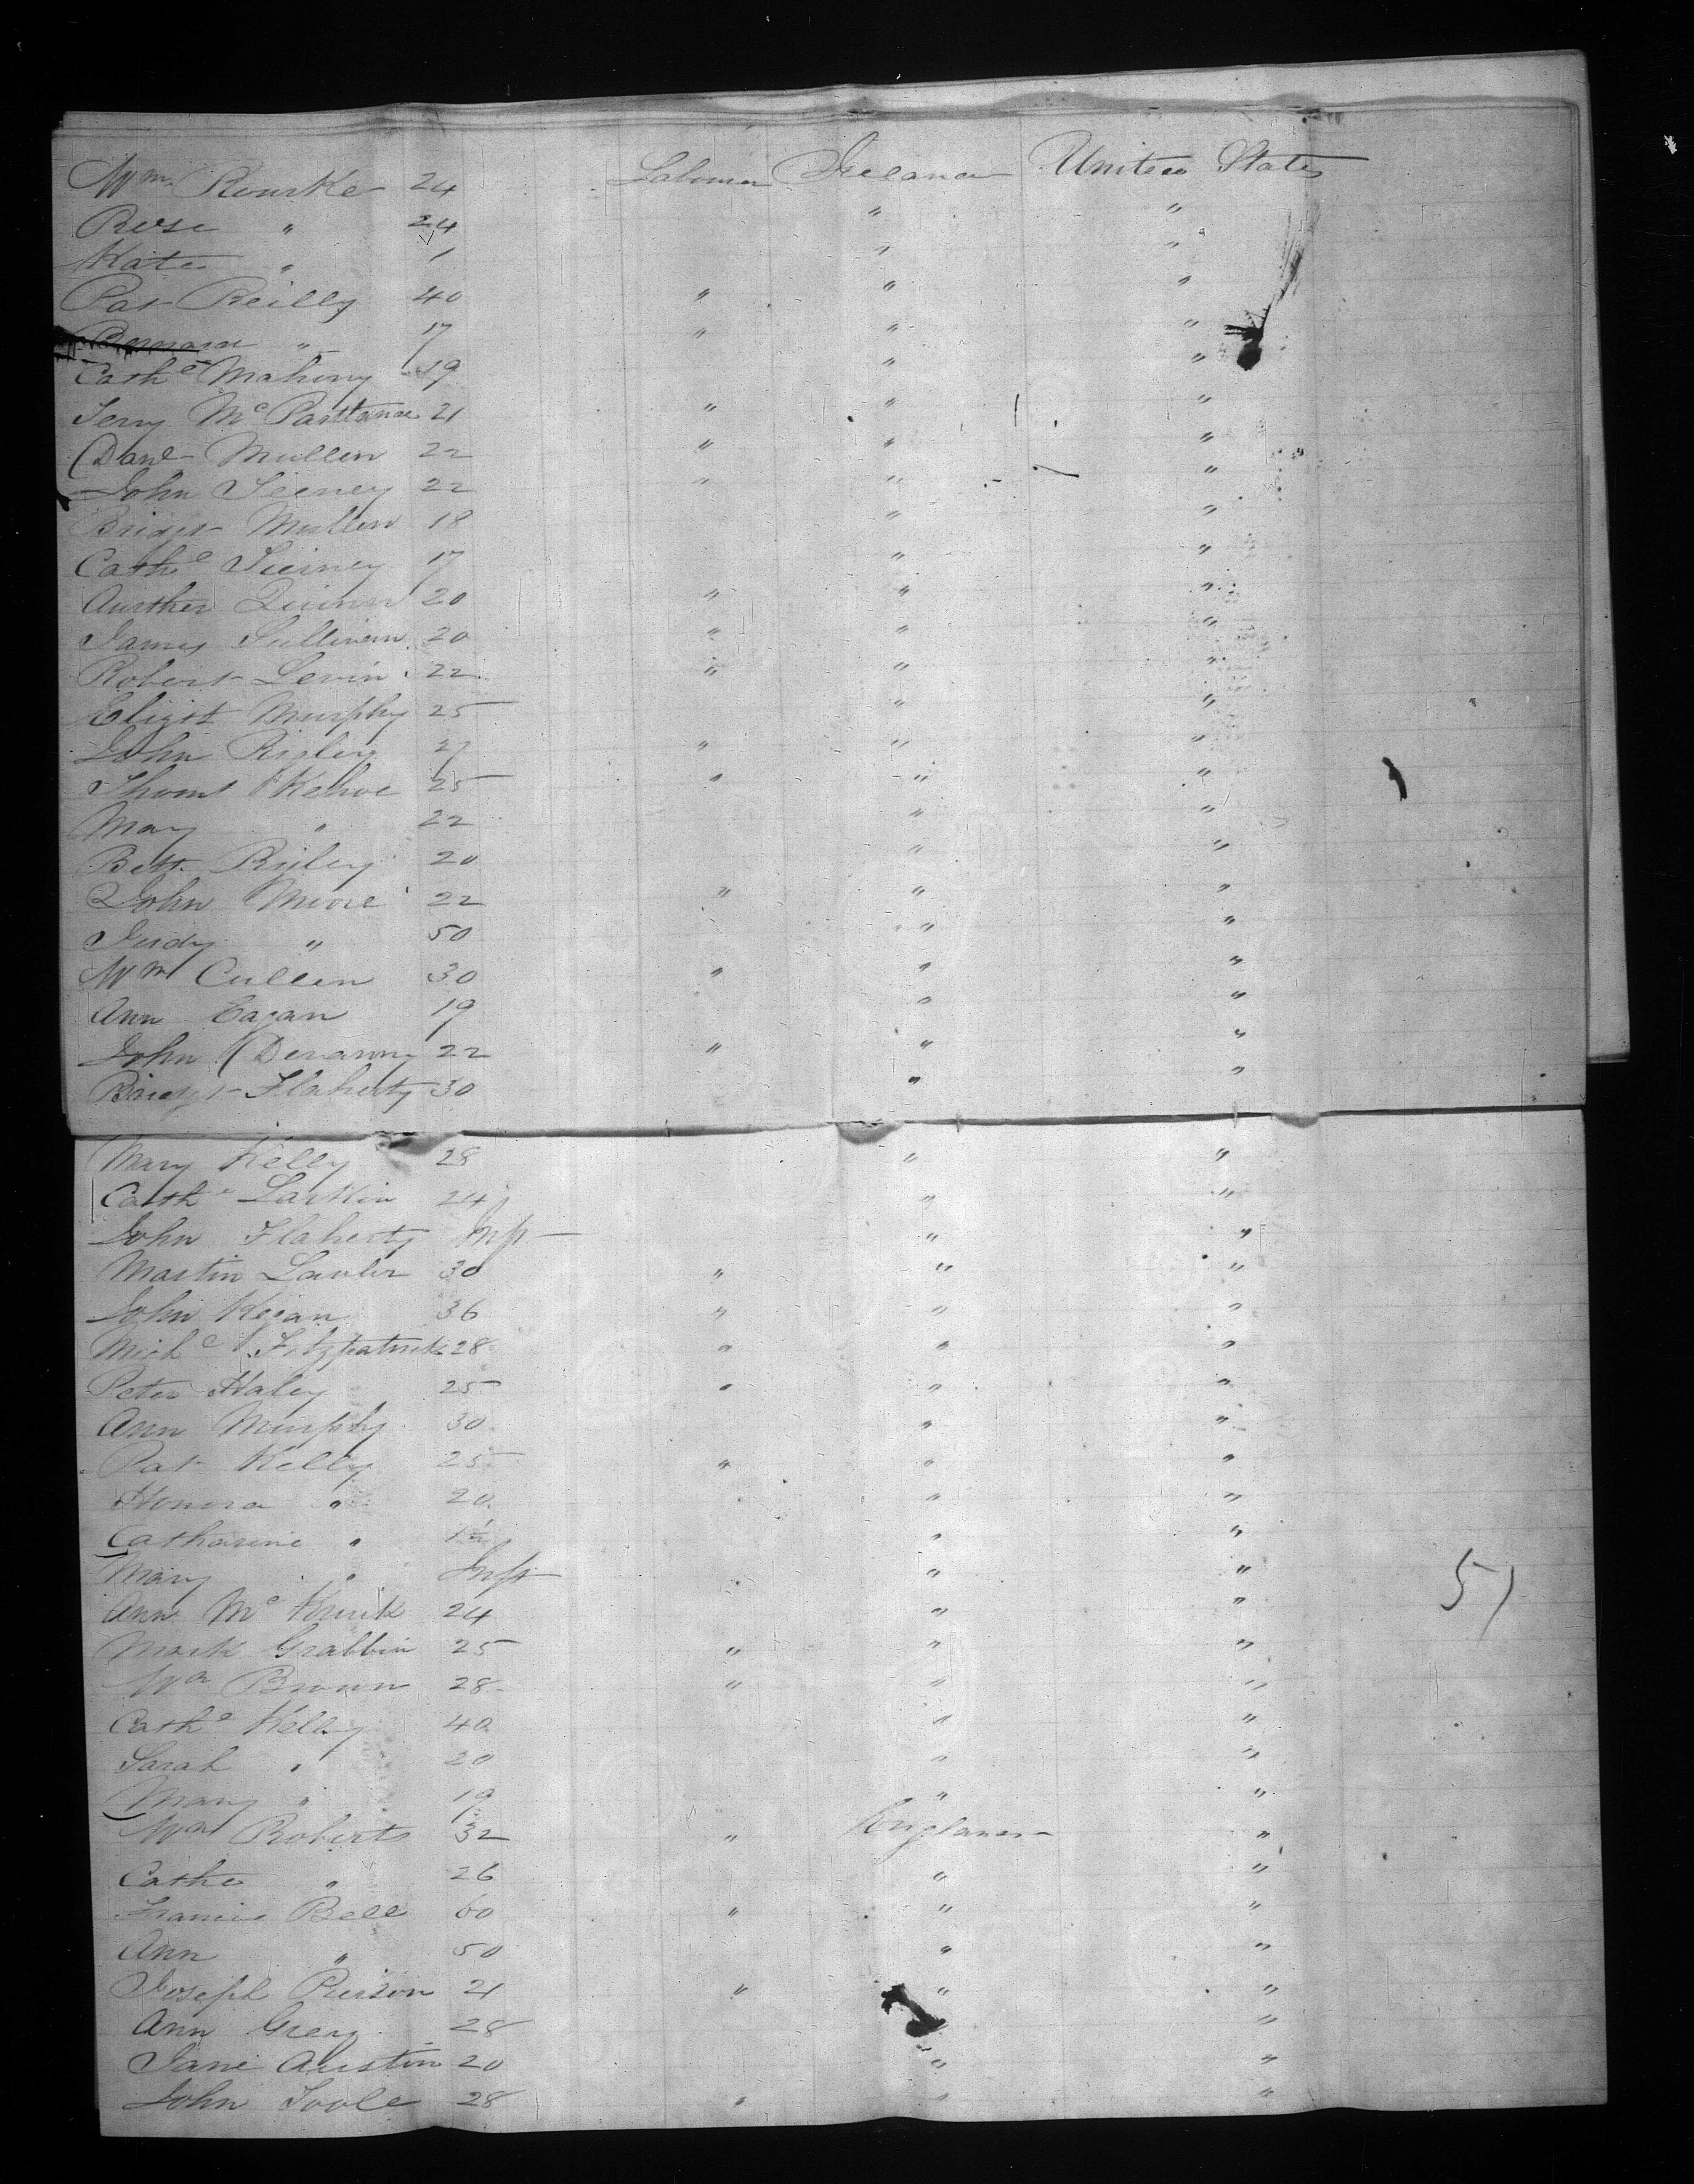 Wm Rourke 24 Laborer Ireland United States
Rose " 24 " "
Kate " 1 " "
Pat Reilly 40 " " "
Bernard " 17 " " "
Cathe Mahony 19 " "
Terry Mc Partland 21 " " "
Danl Mullen 22 " " "
John Feeney 22 " " "
Bridgt Mullen 18 " "
Cathe 17 " "
Aurther Quinn 20 " " "
James Sullivan 20 " " "
Robert Levin 22 " " "
Elizt Murphy 25 " "
John Rigley 27 " " "
Thoms Kehoe 25 " " "
Mary " 22 " "
Bett Rigley 20 " "
John Moore 22 " " "
Judy " 50 " "
Wm Cullen 30 " " "
Ann Eagan 19 " "
John Devanny 22 " " "
Bridgt Flaherty 30 " "
Mary Kelly 28 " "
Cathe Larkin 24 " "
John Flaherty Inft " "
Martin Lawler 30 " " "
John Kegan 36 " " "
Miche Fitzpatrick 28 " " "
Peter Haley 25 " " "
Ann Murphy 30 " "
Pat Kelly 25 " " "
Honora " 20 " "
Catharine " 1½ " "
Mary " Inft " "
Ann Mc 24 " "
Mark Grabbin 25 " " "
Wm Brown 28 " " "
Cathe Kelly 40 " "
Sarah " 20 " "
Mary " 19 " "
Wm Roberts 32 " England "
Cathe " 26 " "
Francis Bell 60 " " "
Ann " 50 " "
Joseph Pierson 21 " " "
Ann Grey 28 " "
Jane Austin 20 " "
John Toole 28 " " "
51